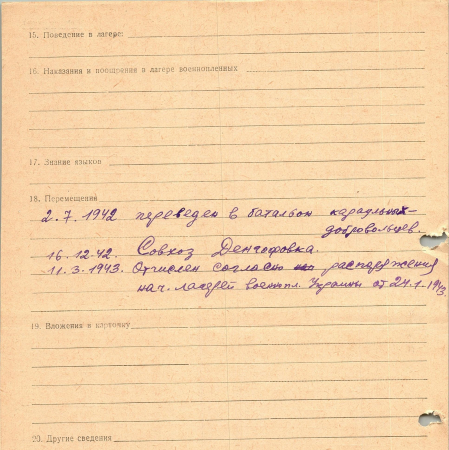 15. Поведение в лагере:
16. Наказания и поощрения в лагере военнопленных
17. Знание языков
18. Перемещения
2.7.1942 переведен в батальон караульных-
добровольцев.
16.12.42. Совхоз Денгофовка.
11.3.1943. Отчислен согласно распоряжения
нач. лагерей военнопл. Украины от 24.1.1943.
19. Вложения в карточку
20. Другие сведения